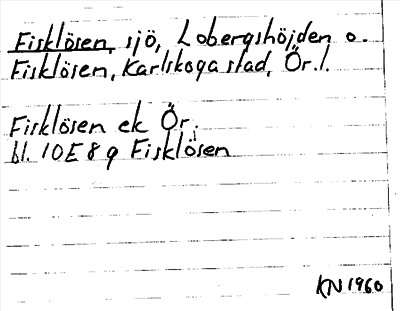 Fisklösen, sjö, Lobergshöjden o.
Fisklösen, Karlskoga stad, Ör.l.
Fisklösen ek Ör.
bl. 10E 8g Fisklösen
KN 1960